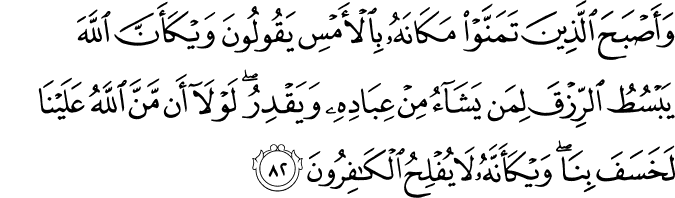 وَأَصْبَحَ ٱلَّذِينَ تَمَنَّوْا۟ مَكَانَهُۥ بِٱلْأَمْسِ يَقُولُونَ وَيْكَأَنَّ ٱللَّهَ
يَبْسُطُ ٱلرِّزْقَ لِمَن يَشَآءُ مِنْ عِبَادِهِۦ وَيَقْدِرُ ۖ لَوْلَآ أَن مَّنَّ ٱللَّهُ عَلَيْنَا
لَخَسَفَ بِنَا ۖ وَيْكَأَنَّهُۥ لَا يُفْلِحُ ٱلْكَٰفِرُونَ ٨٢